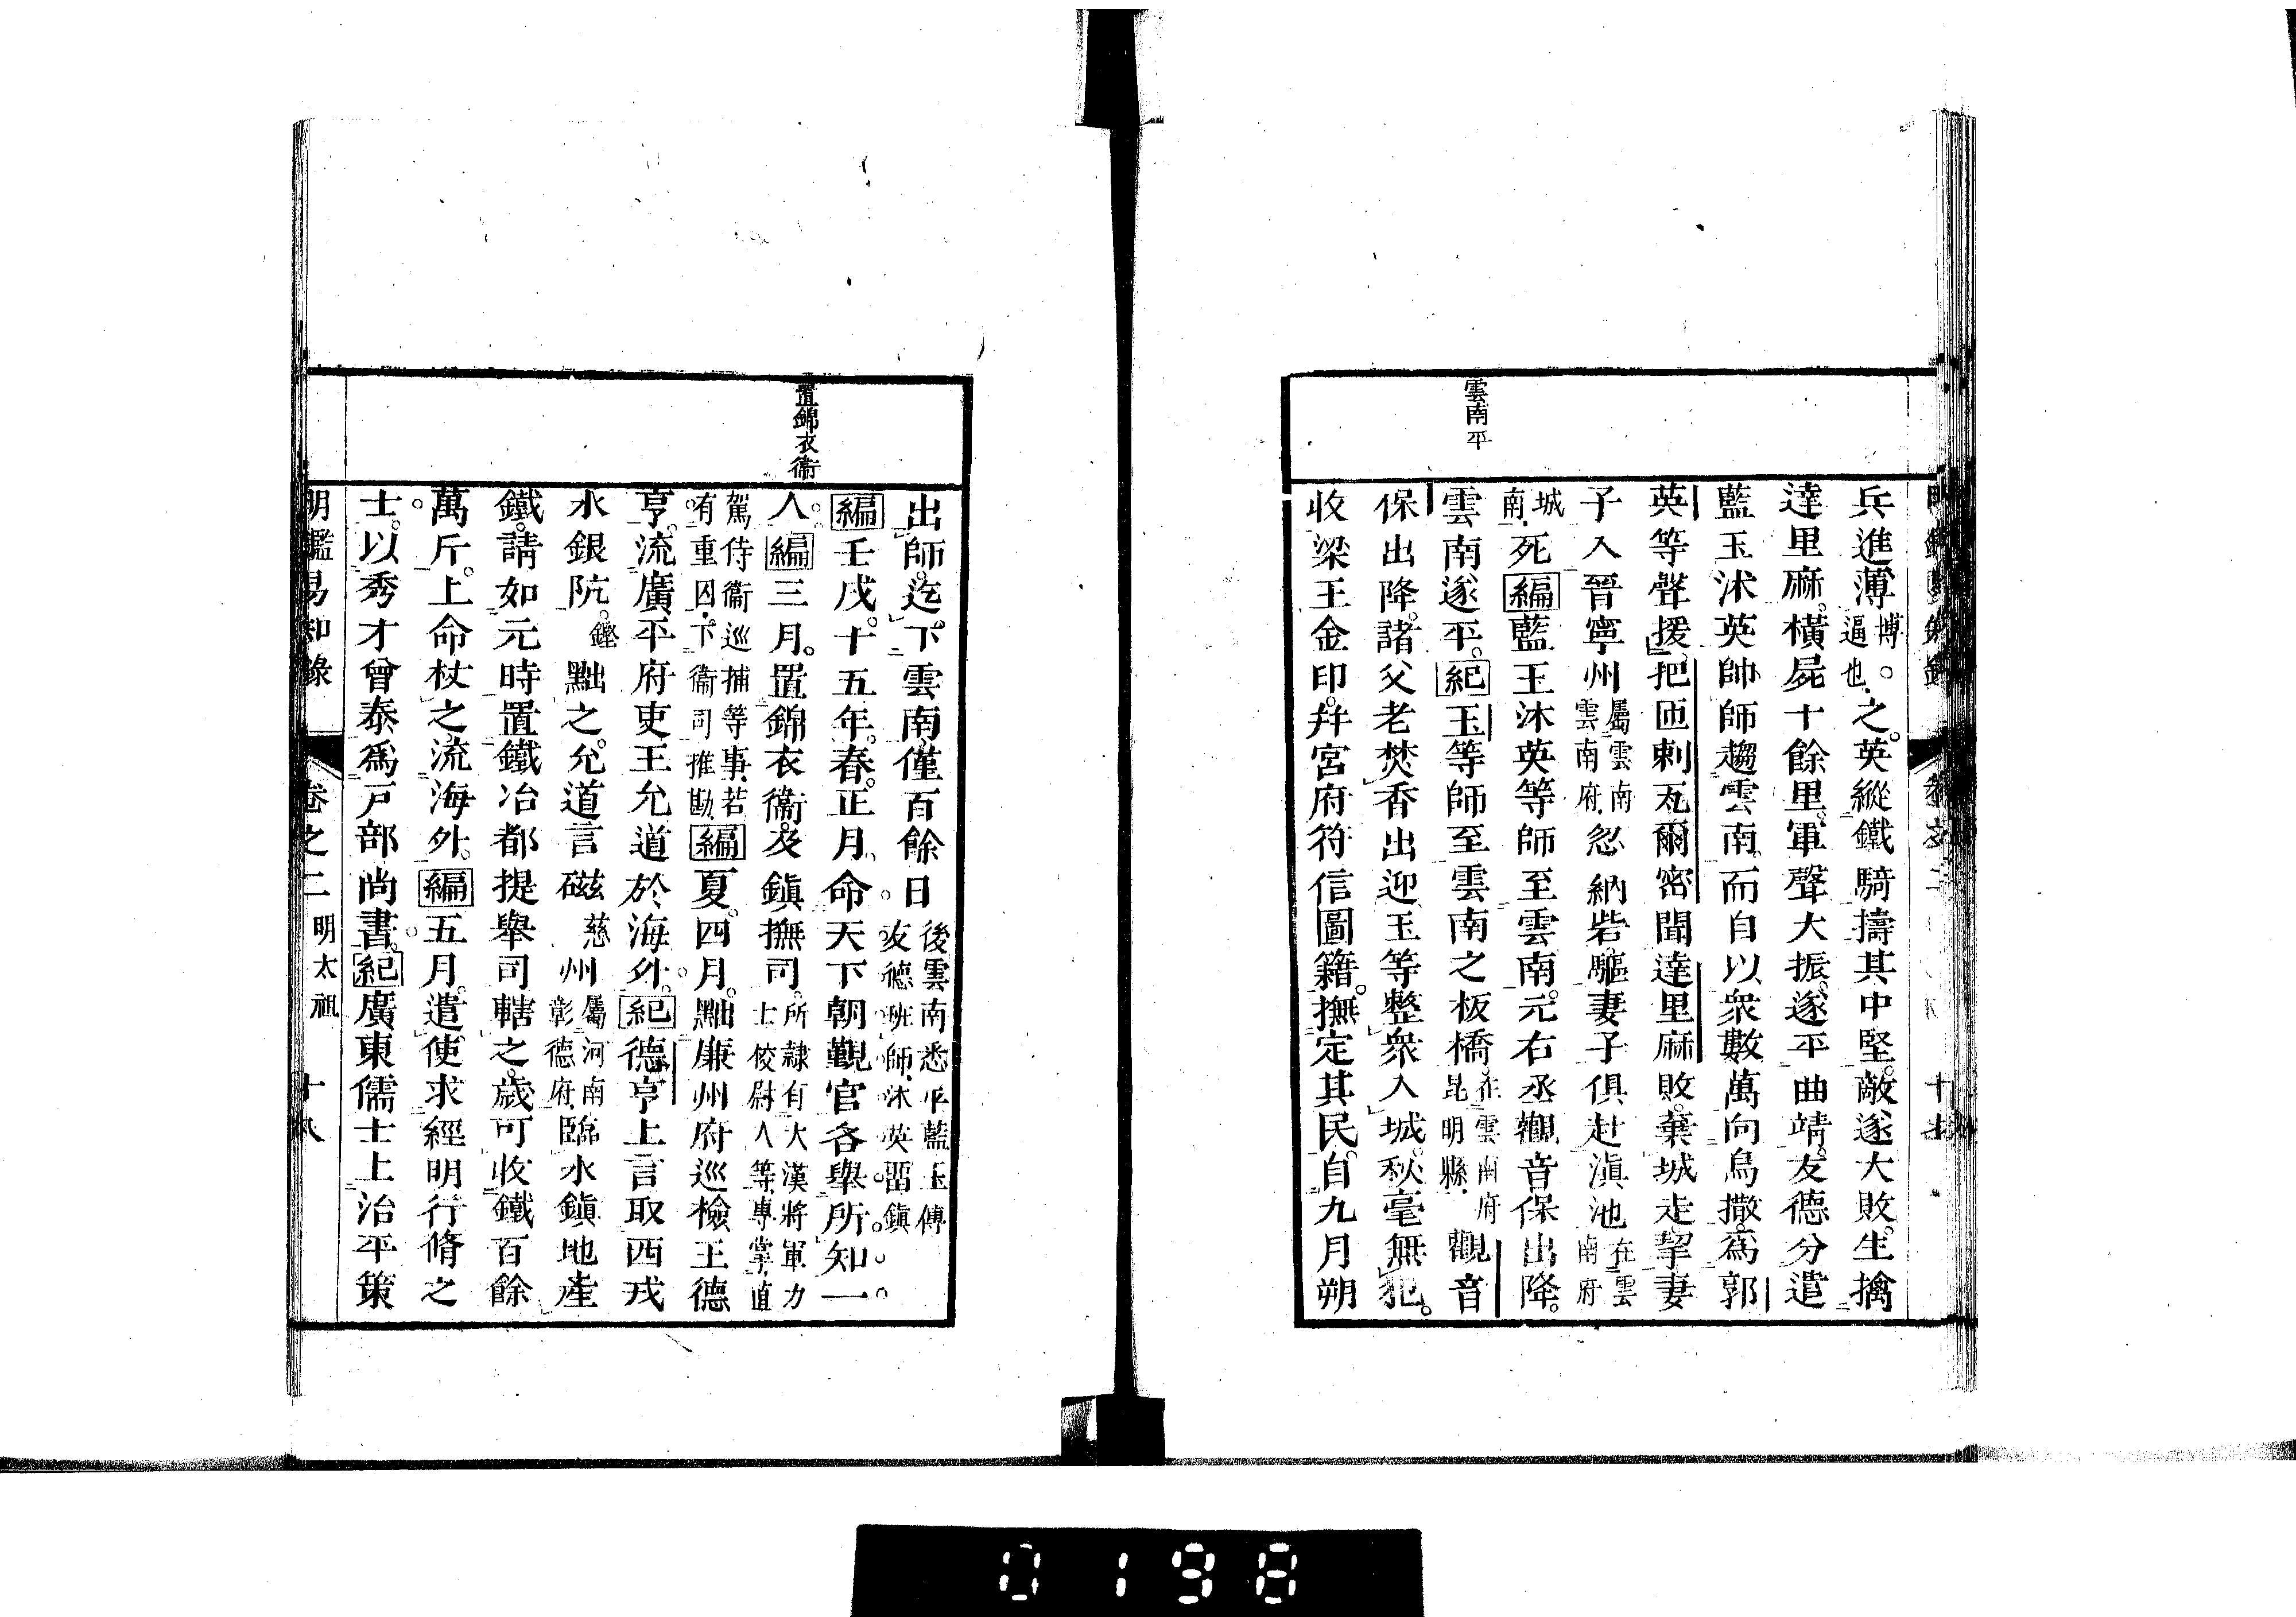 雲南平
兵進薄博。逼也。之。英縱鐵騎擣其中堅。敵遂大敗。生擒
達里麻。橫屍十餘里。軍聲大振。遂平曲靖。友德分遣
藍玉沐英帥師趨雲南。而自以衆數萬向烏撒。爲郭
英等聲援。把匝剌瓦爾密聞達里麻敗。棄城走。挈妻
子入晉寧州屬雲南雲南府。忽納砦。驅妻子俱赴滇池在雲南府
城南。死編藍玉沐英等師至雲南。元右丞觀音保出降。
雲南遂平。紀玉等師至雲南之板橋。在雲南府昆明縣。觀音
保出降。諸父老焚香出迎。玉等整衆入城。秋毫無犯。
收梁王金印。幷宮府符信圖籍。撫定其民。自九月朔
置錦衣衞
出師。迄下雲南僅百餘日後雲南悉平藍玉傅友德班師。沐英畱鎭
編壬戌。十五年。春。正月。命天下朝覲官各舉所知一
人。編三月。置錦衣衞。及鎭撫司。所隷有大漢將軍力士校尉人等。專掌直
駕侍衞巡捕等事。若有重囚。下衞司推勘。編夏。四月。黜廉州府巡檢王德
亨。流廣平府吏王允道於海外。紀德亨上言取西戎
水銀阬。鏗黜之。允道言磁慈州屬河南彰德府。臨水鎭地產
鐵。請如元時置鐵冶都提舉司轄之。歲可收鐵百餘
萬斤。上命杖之流海外。編五月。遣使求經明行脩之
士。以秀才曾泰爲戸部尚書。紀廣東儒士上治平策
明鑑易知錄 卷之二 明太祖 十八